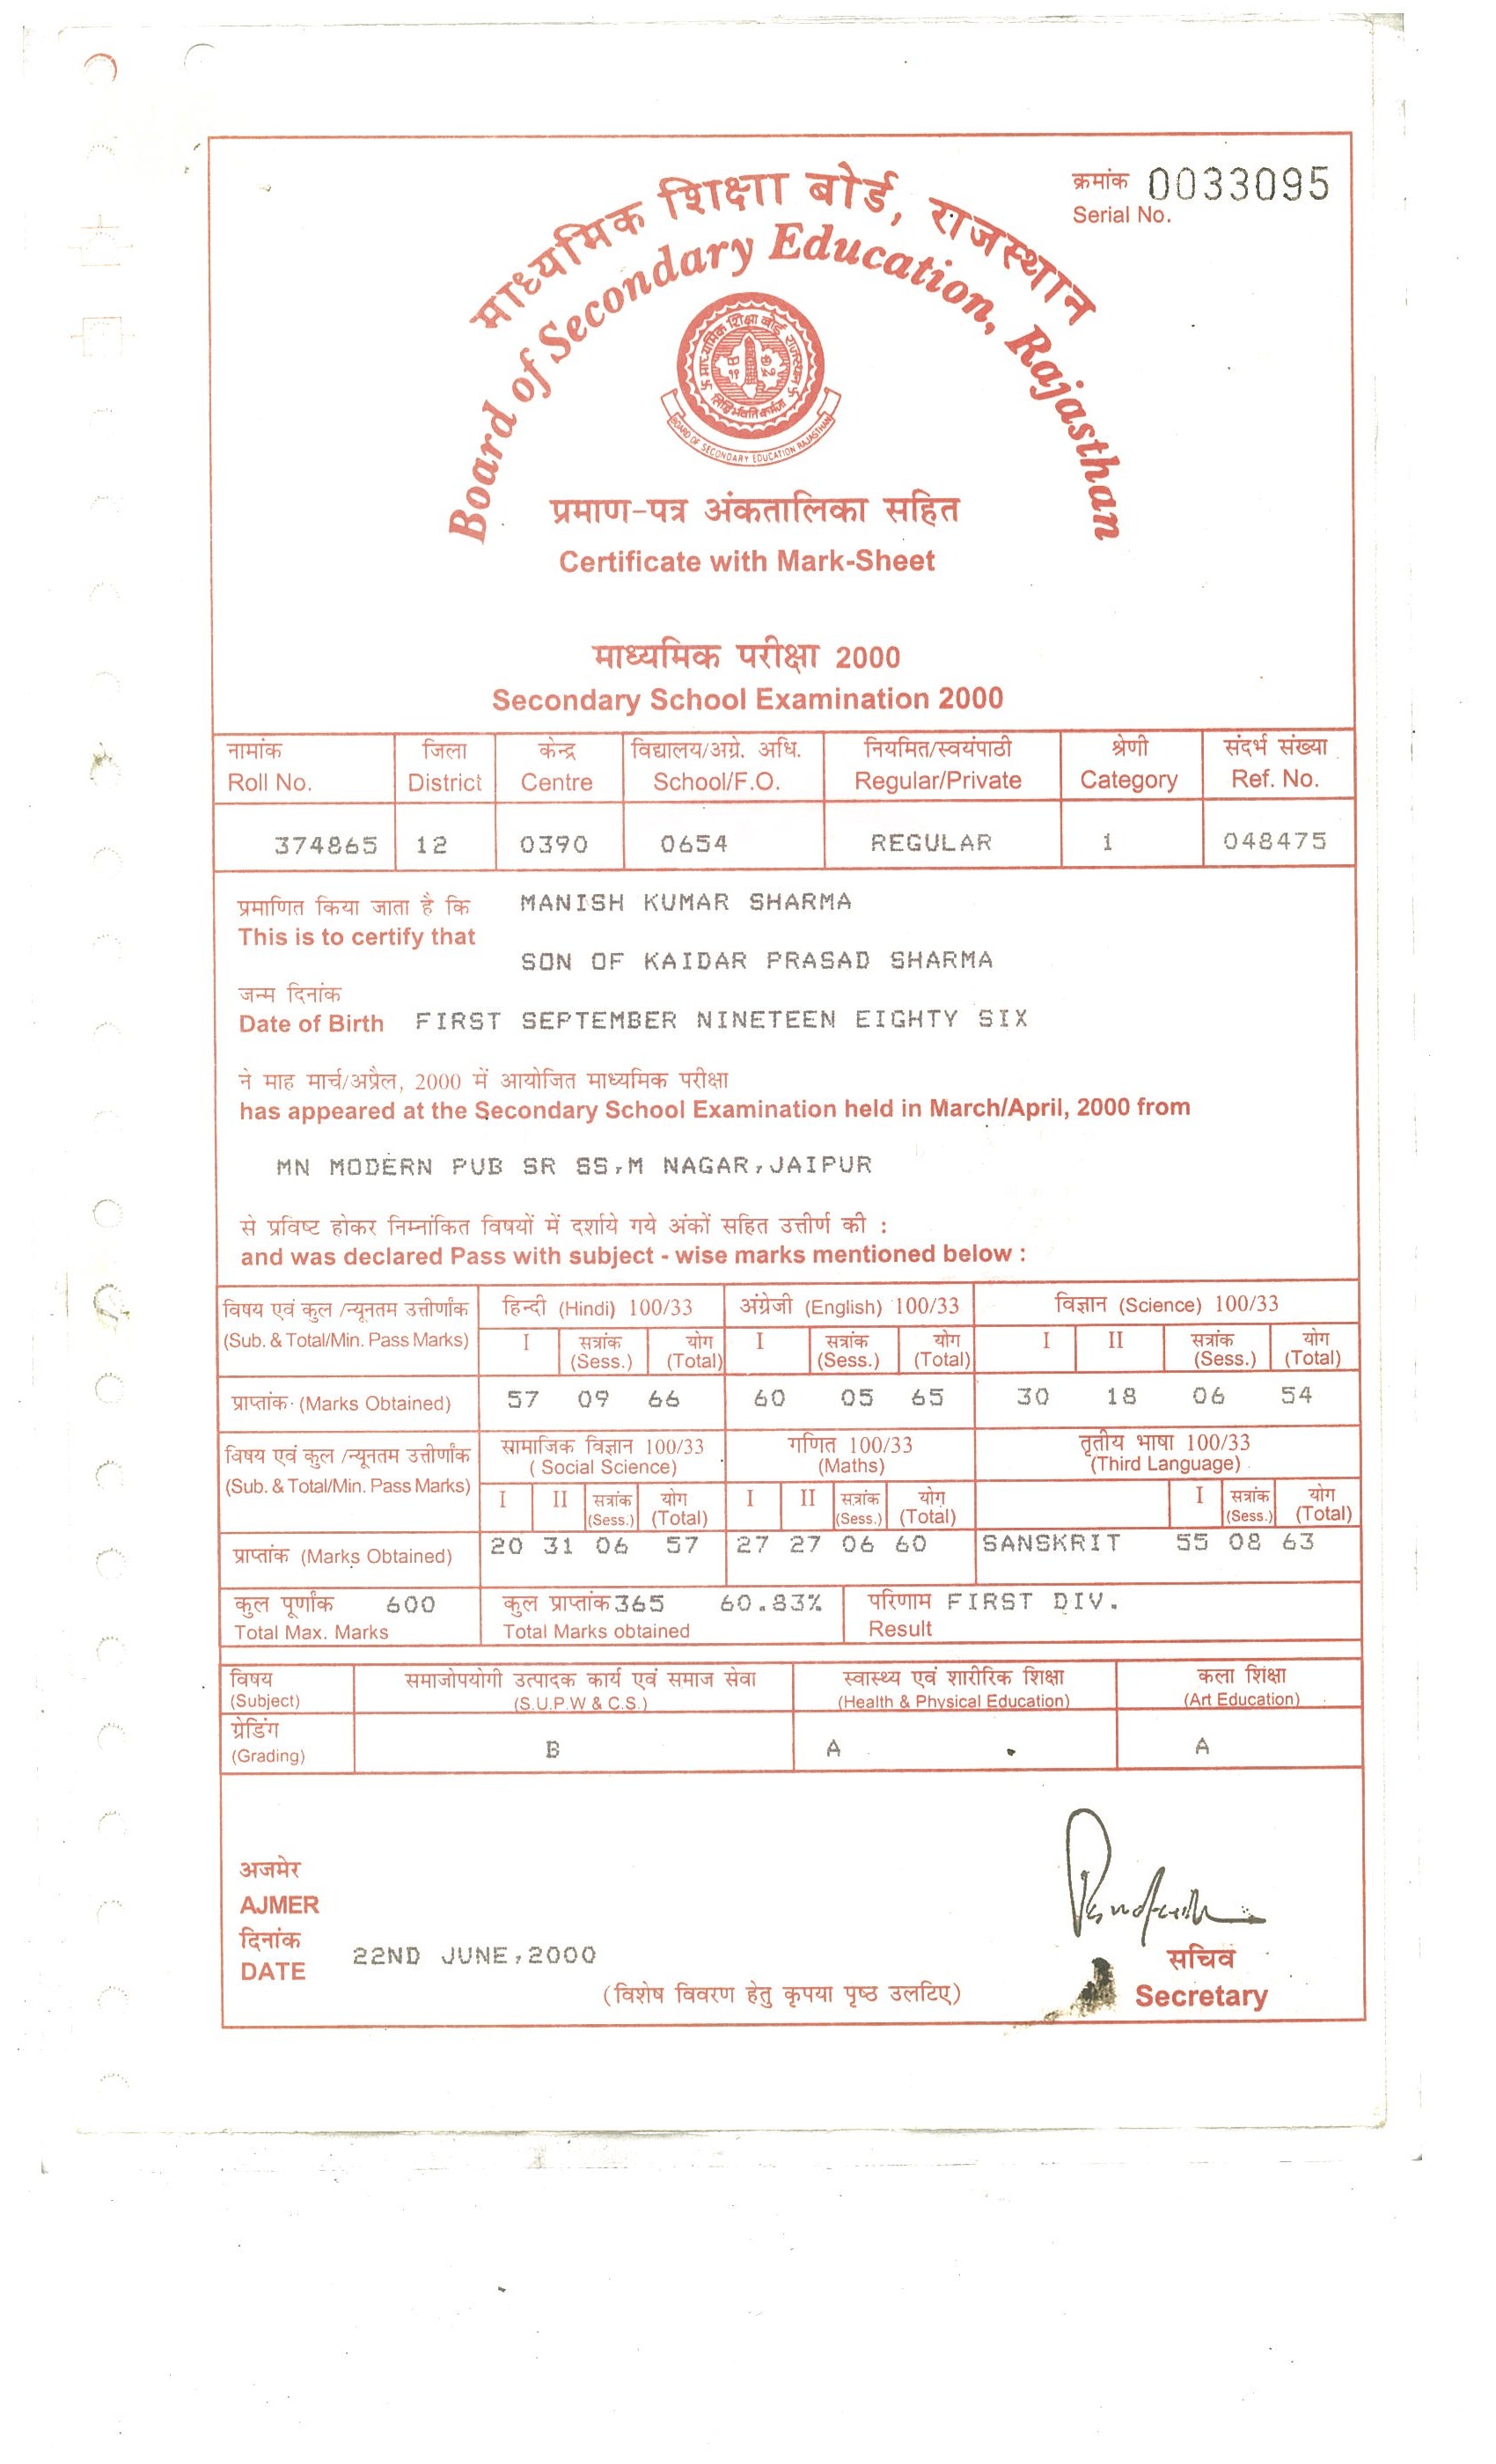 क्रमांक 0033095
Serial No.
माध्यमिक शिक्षा बोर्ड, राजस्थान
Board of Secondary Education, Rajasthan
माध्यमिक शिक्षा बोर्ड राजस्थान
BOARD OF SECONDARY EDUCATION RAJASTHAN
प्रमाण-पत्र अंकतालिका सहित
Certificate with Mark-Sheet
माध्यमिक परीक्षा 2000
Secondary School Examination 2000
नामांक जिला केन्द्र विद्यालय/अग्रे. अधि. नियमित/स्वयंपाठी श्रेणी संदर्भ संख्या
Roll No. District Centre School/F.O. Regular/Private Category Ref. No.
374865 12 0390 0654 REGULAR 1 048475
प्रमाणित किया जाता है कि MANISH KUMAR SHARMA
This is to certify that
SON OF KAIDAR PRASAD SHARMA
जन्म दिनांक
Date of Birth FIRST SEPTEMBER NINETEEN EIGHTY SIX
ने माह मार्च/अप्रैल, 2000 में आयोजित माध्यमिक परीक्षा
has appeared at the Secondary School Examination held in March/April, 2000 from
MN MODERN PUB SR SS,M NAGAR,JAIPUR
से प्रविष्ट होकर निम्नांकित विषयों में दर्शाये गये अंकों सहित उत्तीर्ण की :
and was declared Pass with subject - wise marks mentioned below :
विषय एवं कुल /न्यूनतम उत्तीर्णांक हिन्दी (Hindi) 100/33 अंग्रेजी (English) 100/33 विज्ञान (Science) 100/33
(Sub. & Total/Min. Pass Marks) I सत्रांक योग I सत्रांक योग I II सत्रांक योग
(Sess.) (Total) (Sess.) (Total) (Sess.) (Total)
प्राप्तांक (Marks Obtained) 57 09 66 60 05 65 30 18 06 54
विषय एवं कुल /न्यूनतम उत्तीर्णांक सामाजिक विज्ञान 100/33 गणित 100/33 तृतीय भाषा 100/33
(Social Science) (Maths) (Third Language)
(Sub. & Total/Min. Pass Marks) I II सत्रांक योग I II सत्रांक योग I सत्रांक योग
(Sess.) (Total) (Sess.) (Total) (Sess.) (Total)
प्राप्तांक (Marks Obtained) 20 31 06 57 27 27 06 60 SANSKRIT 55 08 63
कुल पूर्णांक 600 कुल प्राप्तांक 365 60.83% परिणाम FIRST DIV.
Total Max. Marks Total Marks obtained Result
विषय समाजोपयोगी उत्पादक कार्य एवं समाज सेवा स्वास्थ्य एवं शारीरिक शिक्षा कला शिक्षा
(Subject) (S.U.P.W & C.S.) (Health & Physical Education) (Art Education)
ग्रेडिंग
(Grading) B A A
अजमेर
AJMER
दिनांक
DATE 22ND JUNE,2000
सचिव
(विशेष विवरण हेतु कृपया पृष्ठ उलटिए) Secretary